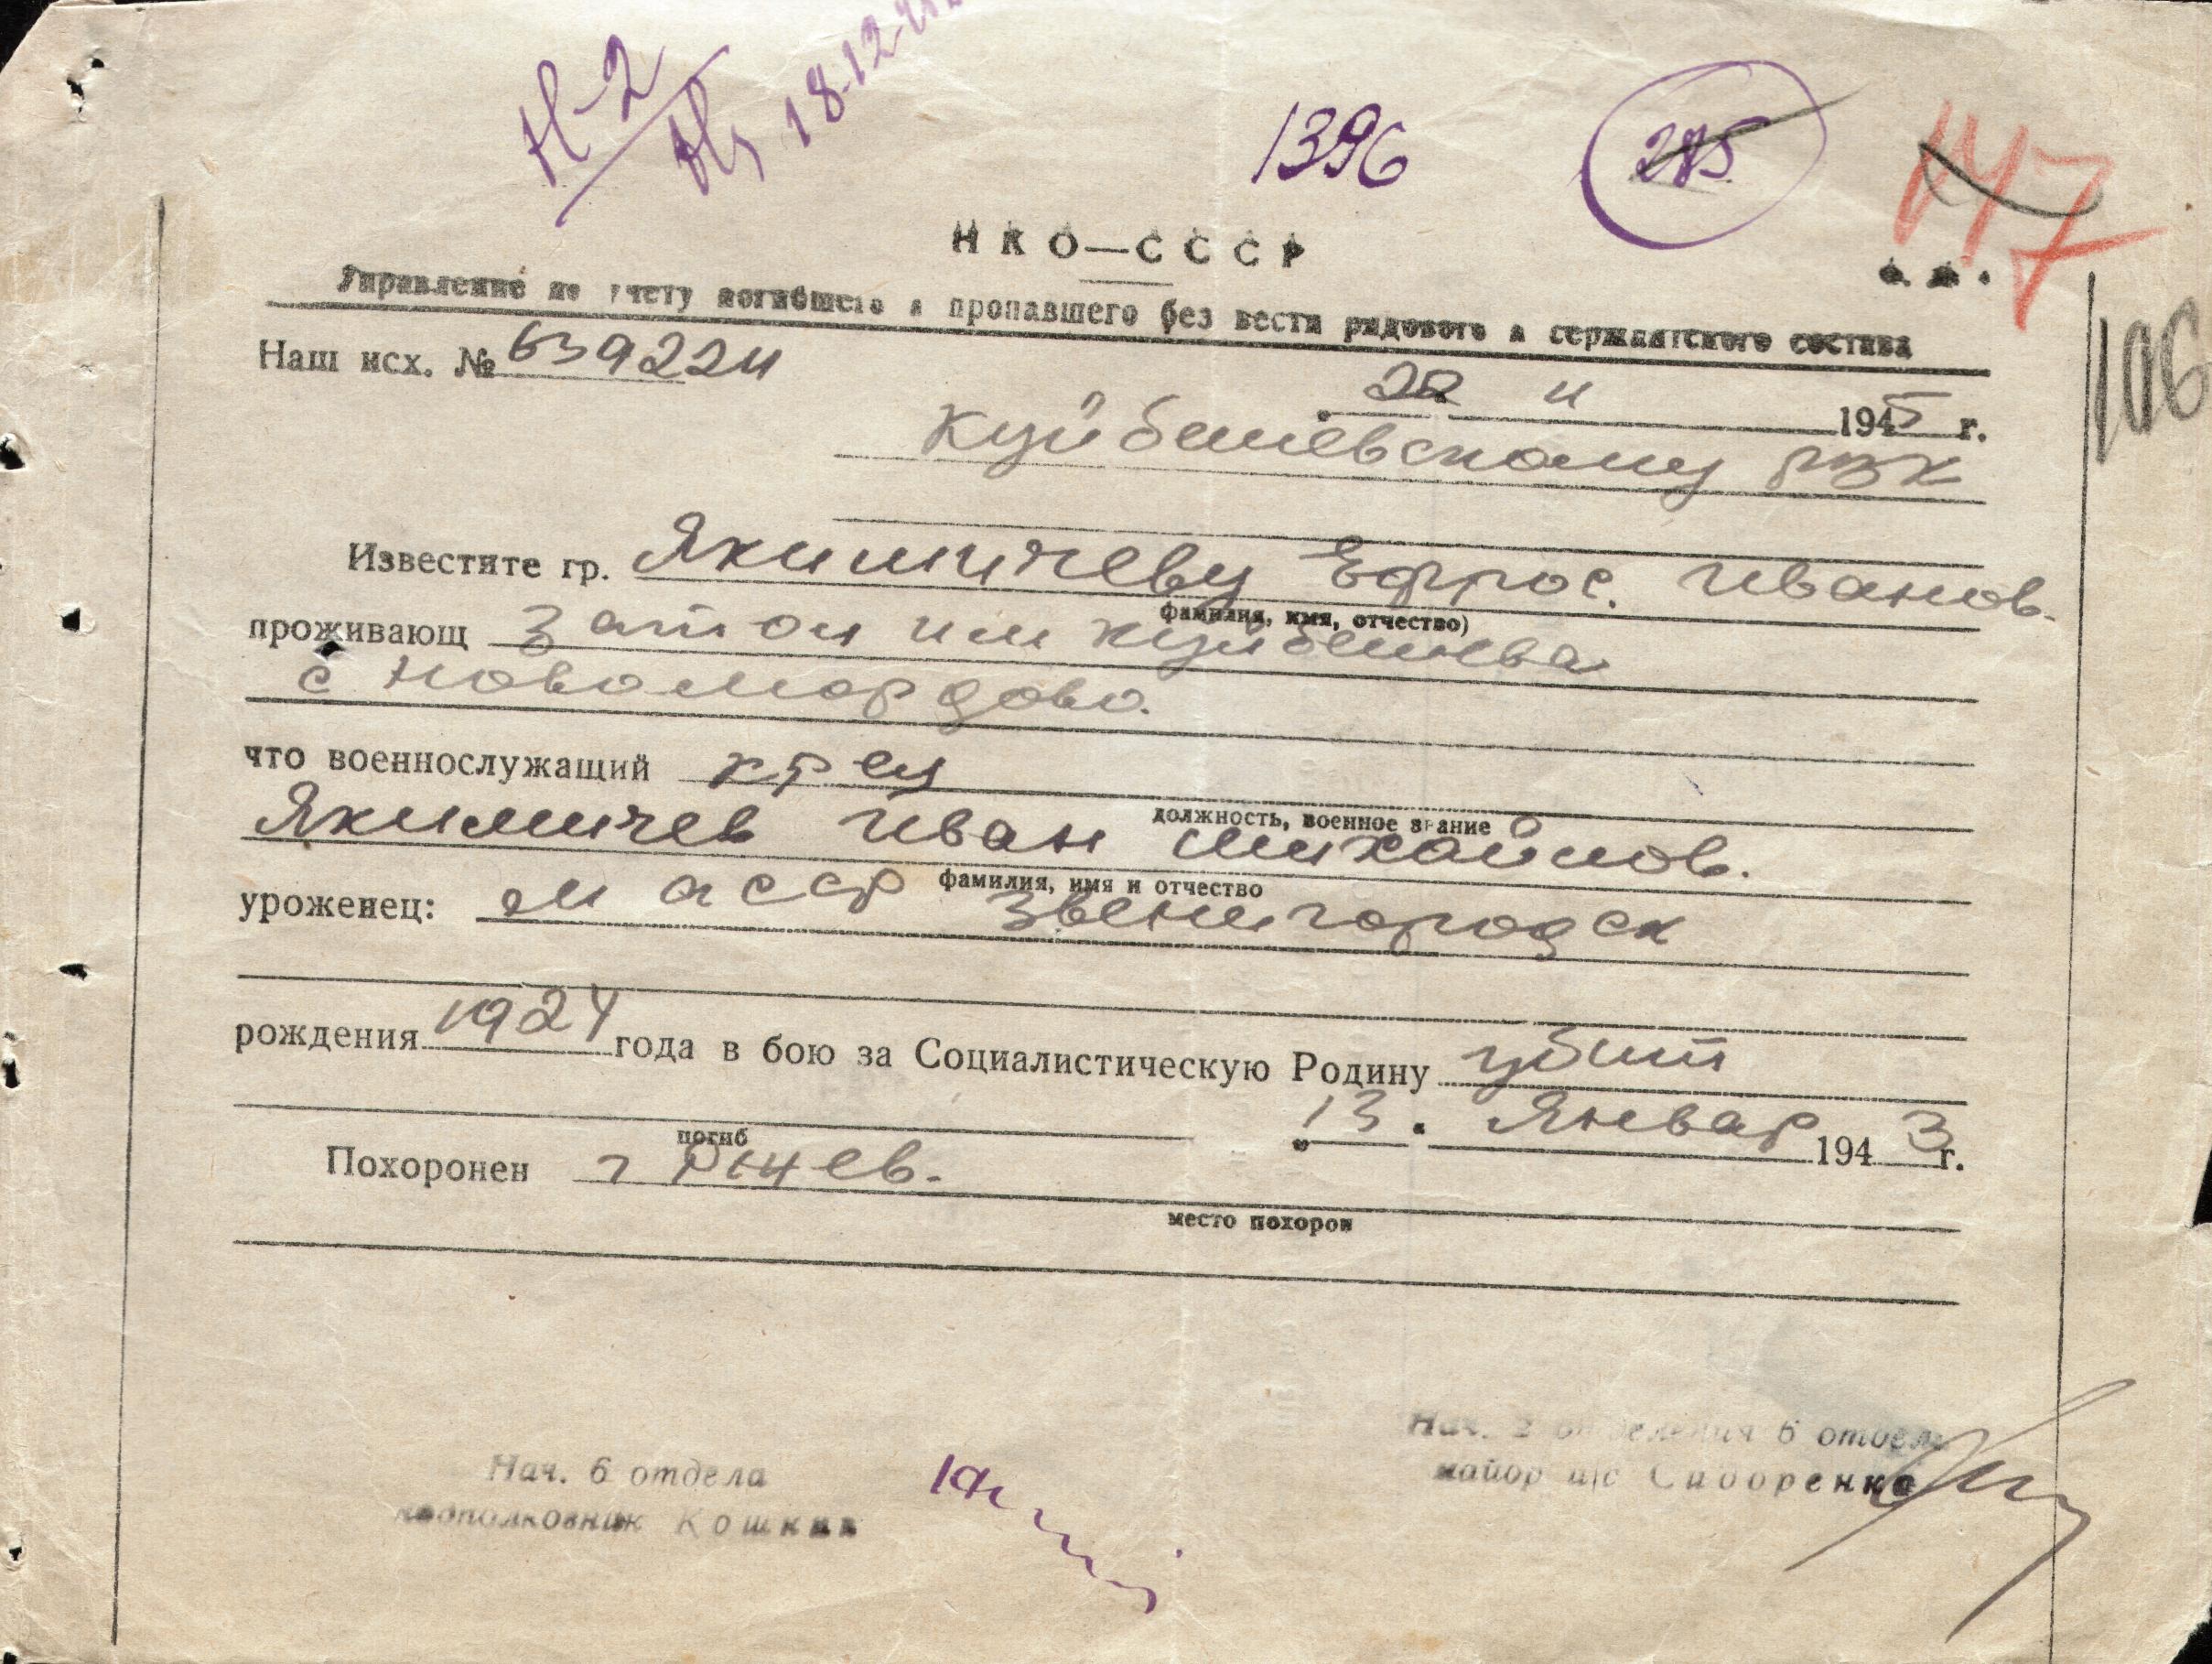 Н-2
18-12-
1396
285
147
106
НКО—СССР
Управление по учету погибшего и пропавшего без вести рядового и сержантского состава
Наш исх. № 639224
22 11 1945 г.
Куйбышевскому РВК
Известите гр. Якимичеву Ефрос. Иванов.
(фамилия, имя, отчество)
проживающ Затон им Куйбышева
с Новомордово.
что военнослужащий кр-ец
должность, военное звание
Якимичев Иван Михайлов.
фамилия, имя и отчество
уроженец: М АССР Звенигородск
рождения 1924 года в бою за Социалистическую Родину убит
погиб „13" Январ 1943 г.
Похоронен г Ржев.
место похорон
Нач. 2 отделения 6 отдела
майор и/с Сидоренко
Нач. 6 отдела
подполковник Кошкин